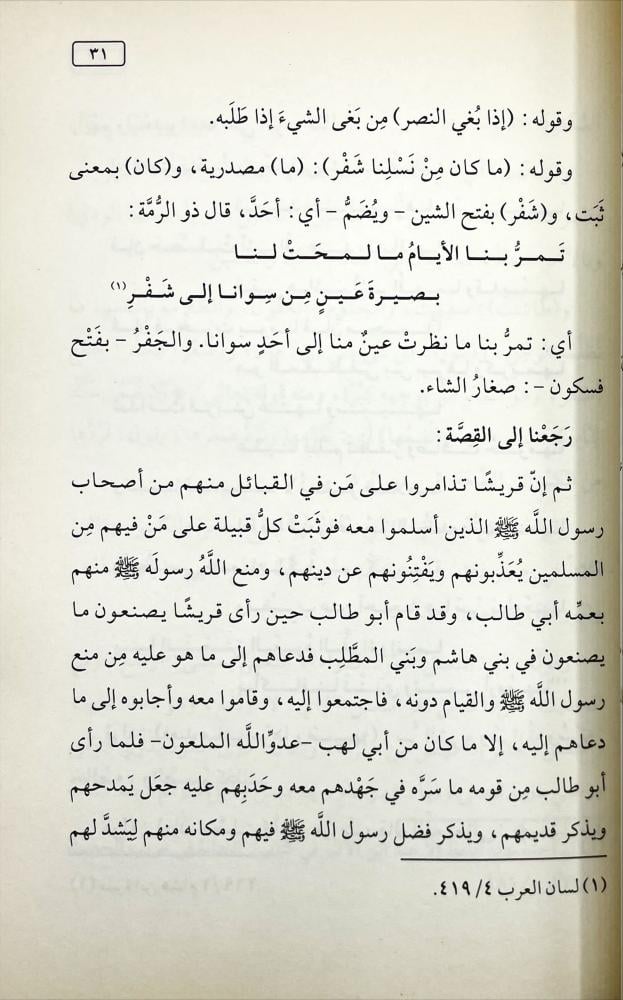 ٣١
وقوله: (إذا بُغي النصر) مِن بَغى الشيءَ إذا طَلَبه.
وقوله: (ما كان مِنْ نَسْلِنا شَفْر): (ما) مصدرية، و(كان) بمعنى
ثَبَت، و(شَفْر) بفتح الشين – ويُضَمُّ – أي: أحَدَّ، قال ذو الرُّمَّة:
تَـمـرُّ بـنـا الأيـامُ مـا لـمـحَـتْ لـنـا
بـصـيـرةَ عَـيـنٍ مِـن سِـوانـا إلى شَـفْـرِ(١)
أي: تمرُّ بنا ما نظرتْ عينٌ منا إلى أحَدٍ سوانا. والجَفْرُ – بفَتْح
فسكون –: صغارُ الشاء.
رَجَعْنا إلى القِصَّة:
ثم إنّ قريشًا تذامروا على مَن في القبائل منهم من أصحاب
رسول اللَّه ﷺ الذين أسلموا معه فوثَبَتْ كلُّ قبيلة على مَنْ فيهم مِن
المسلمين يُعَذِّبونهم ويَفْتِنُونهم عن دينهم، ومنع اللَّهُ رسولَه ﷺ منهم
بعمِّه أبي طالب، وقد قام أبو طالب حين رأى قريشًا يصنعون ما
يصنعون في بني هاشم وبَني المطَّلِب فدعاهم إلى ما هو عليه مِن منع
رسول اللَّه ﷺ والقيام دونه، فاجتمعوا إليه، وقاموا معه وأجابوه إلى ما
دعاهم إليه، إلا ما كان من أبي لهب –عدوِّاللَّه الملعون– فلما رأى
أبو طالب مِن قومه ما سَرَّه في جَهْدهم معه وحَدَبِهم عليه جعَل يَمدحهم
ويذكر قديمهم، ويذكر فضل رسول اللَّه ﷺ فيهم ومكانه منهم لِيَشدَّ لهم
(١) لسان العرب ٤/ ٤١٩.